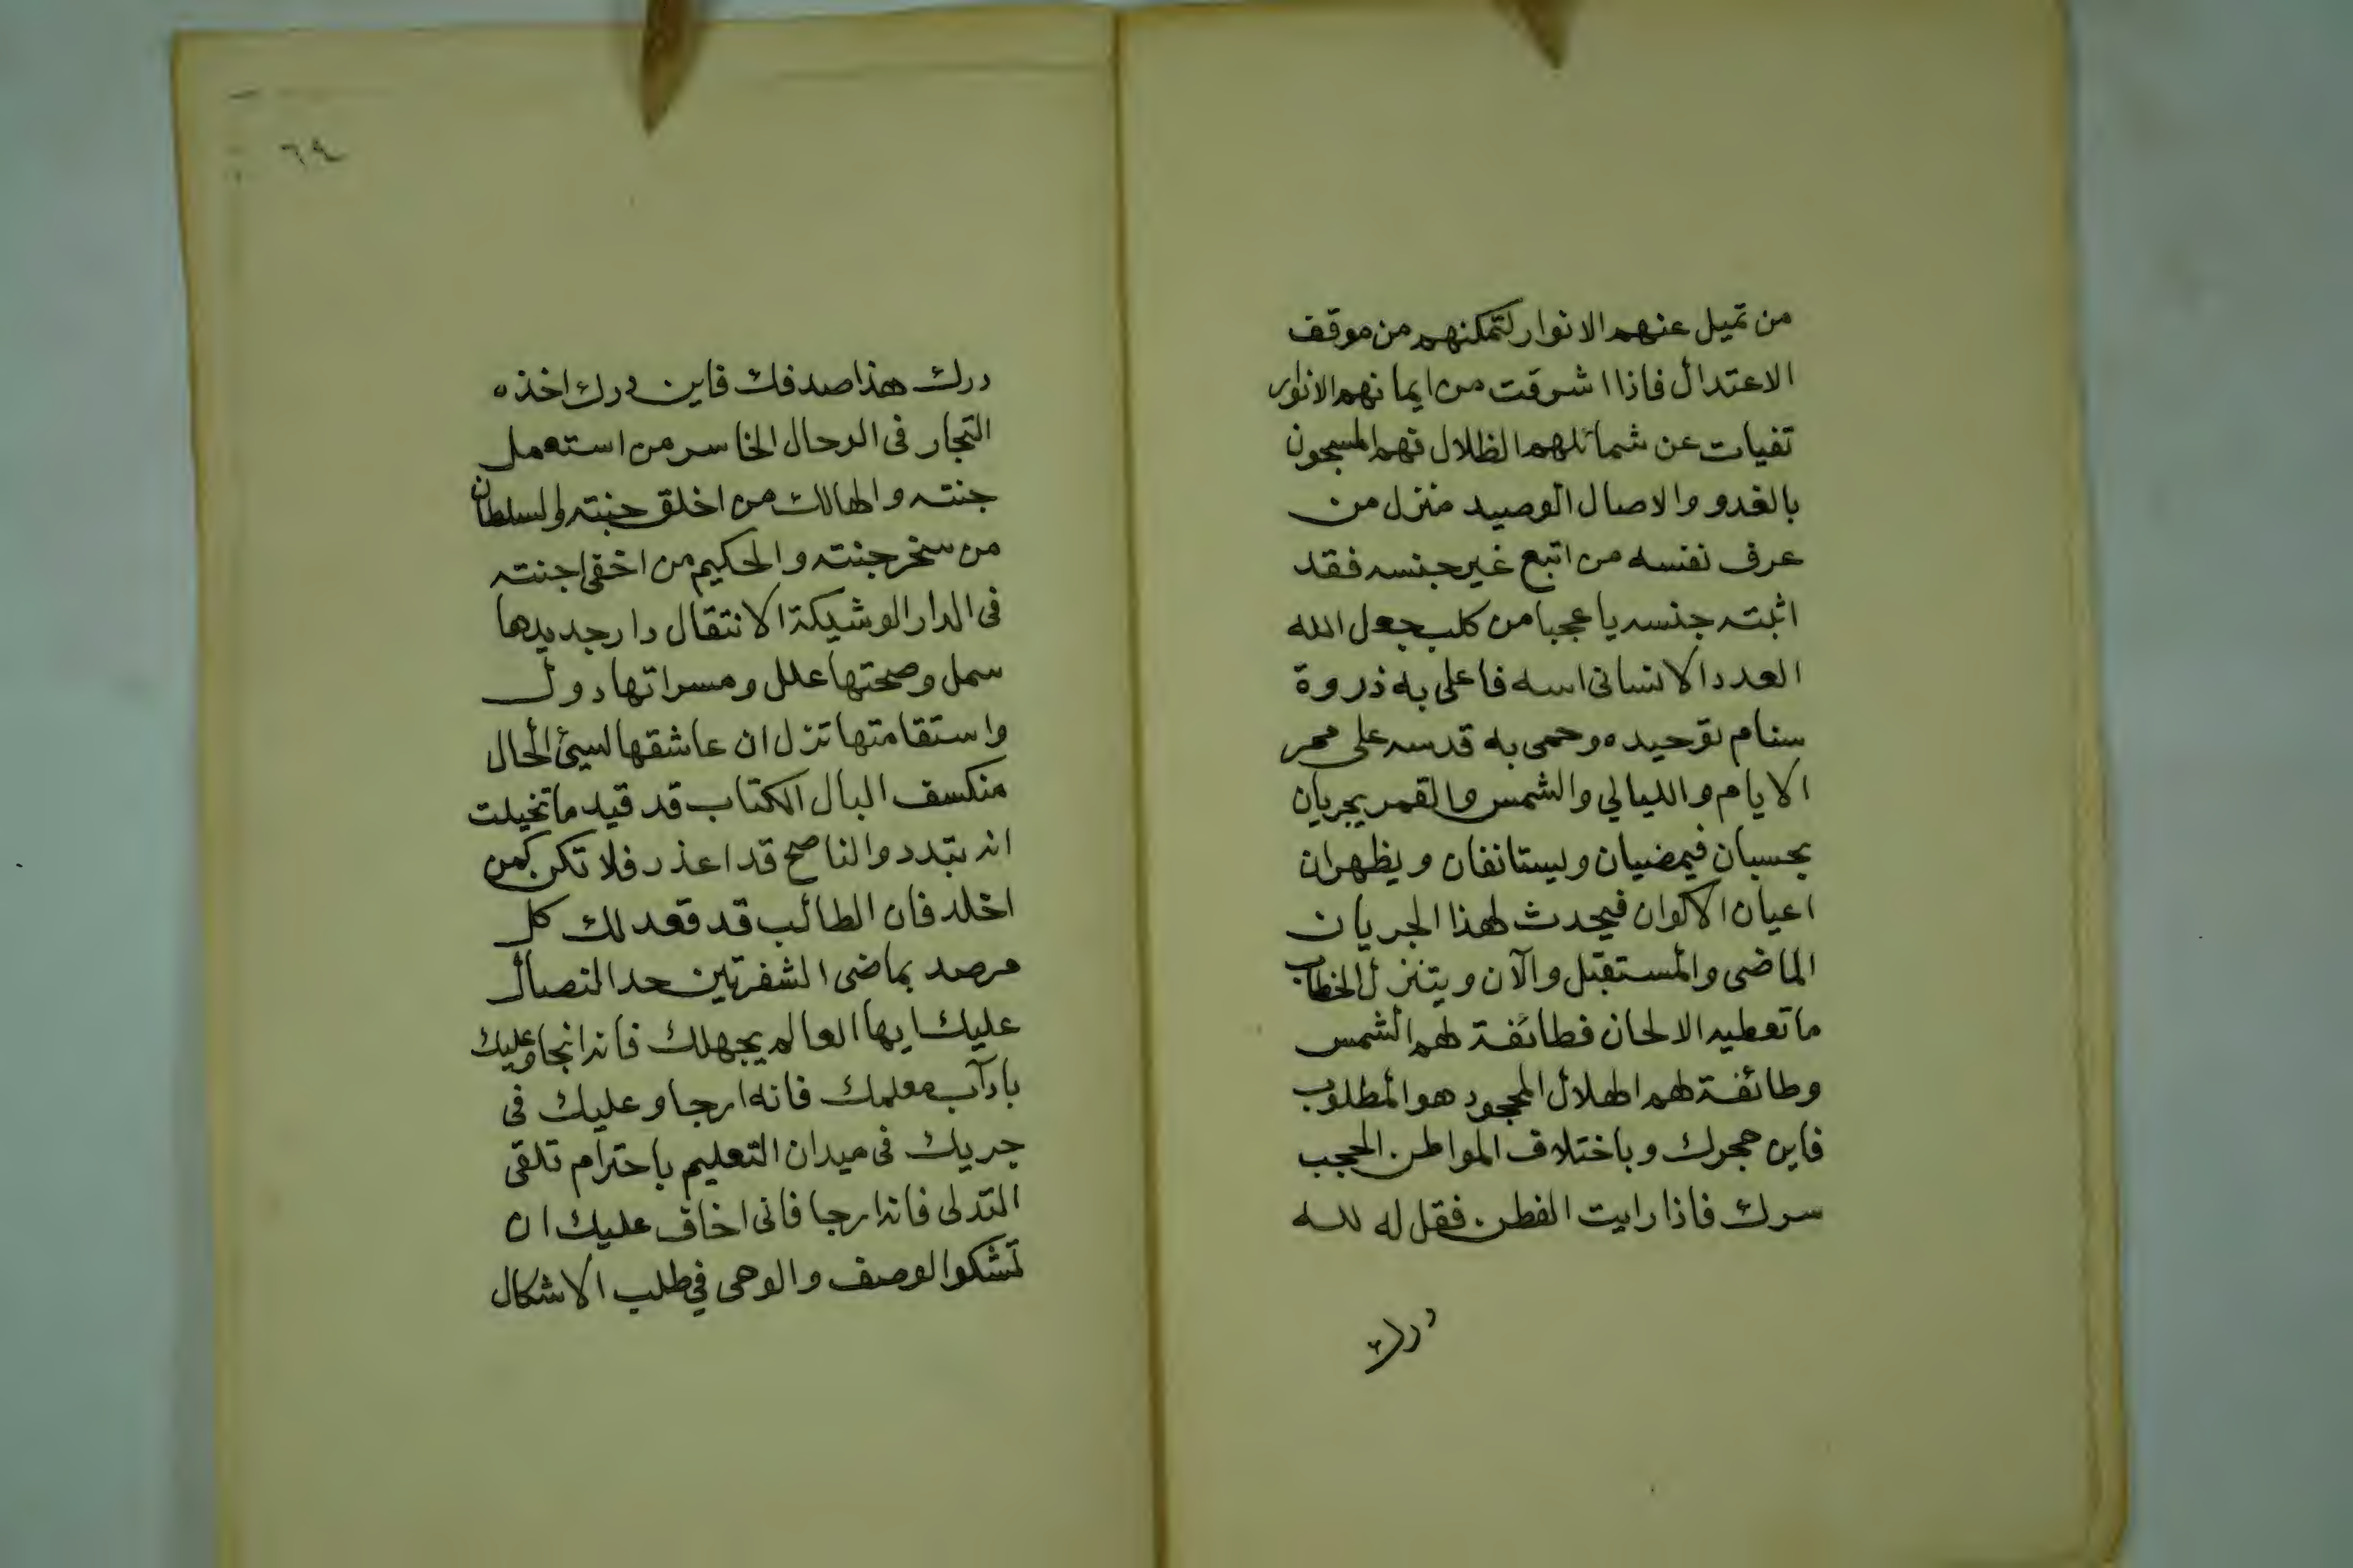 من تميل عنهم الانوار لتمكنهم من موقف
الاعتدال فاذا اشرقت من ايمانهم الانوار
تفيات عن شمائلهم الظلال فهم المسبحون
بالغدو والاصال الوصيد منزل من
عرف نفسه من اتبع غير جنسه فقد
اثبته جنسه يا عجبا من كلب جعل الله
العدد الانسانى اسه فاعلى به ذروة
سنام توحيده وحمى به قدسه على ممر
الايام والليالي والشمس والقمر يجريان
بحسبان فيمضيان ويستانفان ويظهران
اعيان الاكوان فيحدث لهذا الجريان
الماضى والمستقبل والآن ويتنزل الخطاب
ما تعطيه الالحان فطائفة لهم الشمس
وطائفة لهم الهلال المحجود هو المطلوب
فاين هجرك وباختلاف المواطن الحجب
سرك فاذا رايت الفطن فقل له لله
درك
٦٩
درك هذا صدفك فاين درك اخذه
التجار فى الرحال الخاسر من استعمل
جنته والهالك من اخلق جنته والسلطان
من سخر جنته والحكيم من اخفى اجنته
فى الدار الوشيكة الانتقال دار جديدها
سمل وصحتها علل ومسراتها دول
واستقامتها تزل ان عاشقها لسيئ الحال
منكسف البال الكتاب قد قيد ما تخيلت
انه يتبدد والناصح قد اعذر فلا تكن كمن
اخلد فان الطالب قد قعد لك كل
مرصد بماضى الشفرتين حد النصال
عليك ايها العالم بجهلك فانه انجا وعليك
بادآب معلمك فانه ارجا وعليك فى
جريك فى ميدان التعليم باحترام تلقى
التدلى فانه ارجا فانى اخاف عليك ان
تشكوا الوصف والوحى في طلب الاشكال